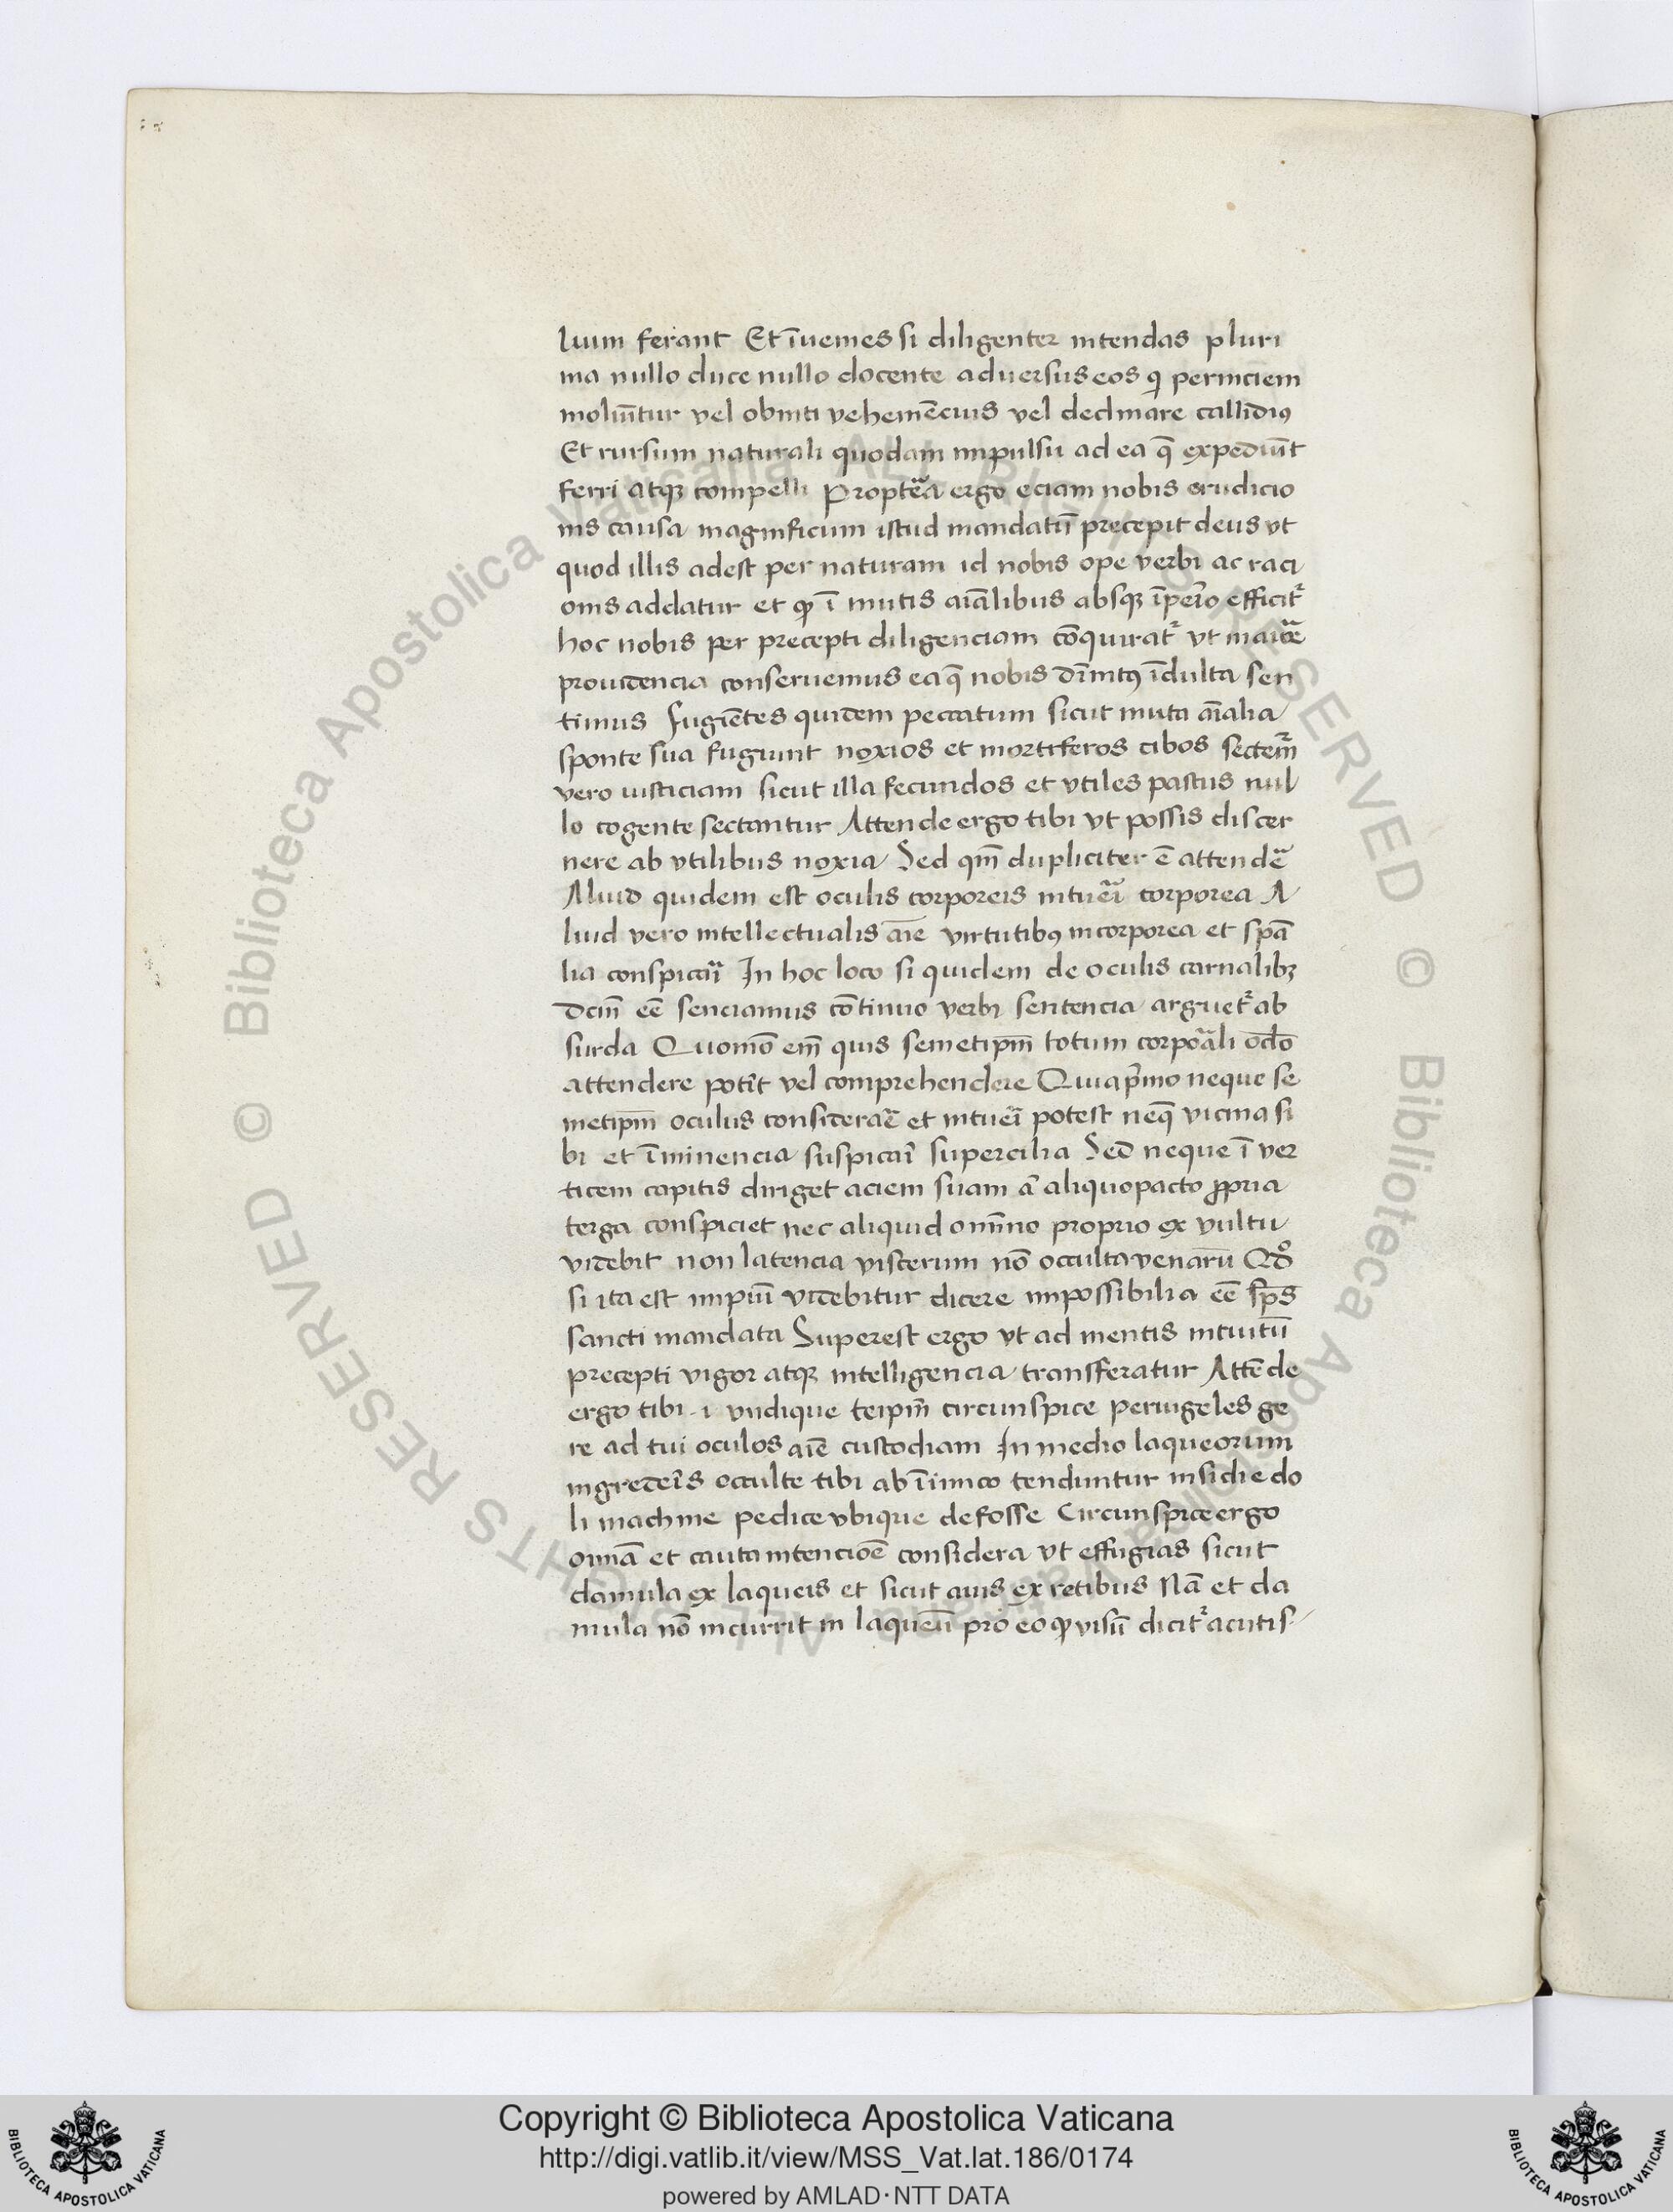 luim ferant Et īuenies si diligenter intendas pluri
ma nullo duce nullo docente aduersus eos qi perniciem
moliūtur vel obniti vehemēcius vel declinare callidiꝰ
Et rursum naturali quodam impulsu ad ea q̄ expediūt
ferri atqꝫ compelli Proptēa ergo eciam nobis erudicio
nis causa magnificum istud mandatū precepit deus vt
quod illis adest per naturam id nobis ope verbi ac raci
onis addatur et qꝫ ī mutis aīalibus absqꝫ īperio efficit᷑
hoc nobis per precepti diligenciam cōquirat᷑ vt
prouidencia conseruemus ea q̄ nobis dīnitꝰ īdulta sen
timus fugiētes quidem peccatum sicut muta aīalia
sponte sua fugiunt noxios et mortiferos cibos sectem̄
vero iusticiam sicut illa fecundos et vtiles pastus nul
lo cogente sectantur Attende ergo tibi vt possis discer
nere ab vtilibus noxia Sed qm̄ dupliciter ē attendē
Aliud quidem est oculis corporeis intuēi corporea A
liud vero intellectualis aīe virtutibꝰ incorporea et spā
lia conspicāi In hoc loco si quidem de oculis carnalibꝫ
dcm̄ eē senciamus cōtinuo verbi sentencia arguet᷑ ab
surda Quomō em̄ quis semetipm̄ totum corpōali
attendere potīt vel comprehendere Quia pͥmo neque se
metipm̄ oculus considerāe et intuēi potest neqꝫ vicina si
bi et īminencia suspicāi supercilia Sed neque ī ver
ticem capitis diriget aciem suam aͭ aliquo pacto ꝓpria
terga conspiciet nec aliquid omīno proprio ex vultu
videbit non latencia viscerum nō occulta venarū Qd̊
si ita est impiū videbitur dicere impossibilia eē sp̄s
sancti mandata Superest ergo vt ad mentis intuitū
precepti vigor atqꝫ intelligencia transferatur Attēde
ergo tibi .i. vndique teipm̄ circunspice peruigeles ge
re ad tui oculos aīe custodiam In medio laqueorum
ingredeīs occulte tibi ab īimico tenduntur insidie do
li machine pedice vbique defosse Circunspice ergo
omīa et cauta intenciōe considera vt effugias sicut
damula ex laqueis et sicut auis ex retibus Nā et da
mula nō incurrit in laqueū pro eo qꝫ visū dicit᷑ acutis
Copyright © Biblioteca Apostolica Vaticana
http://digi.vatlib.it/view/MSS_Vat.lat.186/0174
powered by AMLAD·NTT DATA